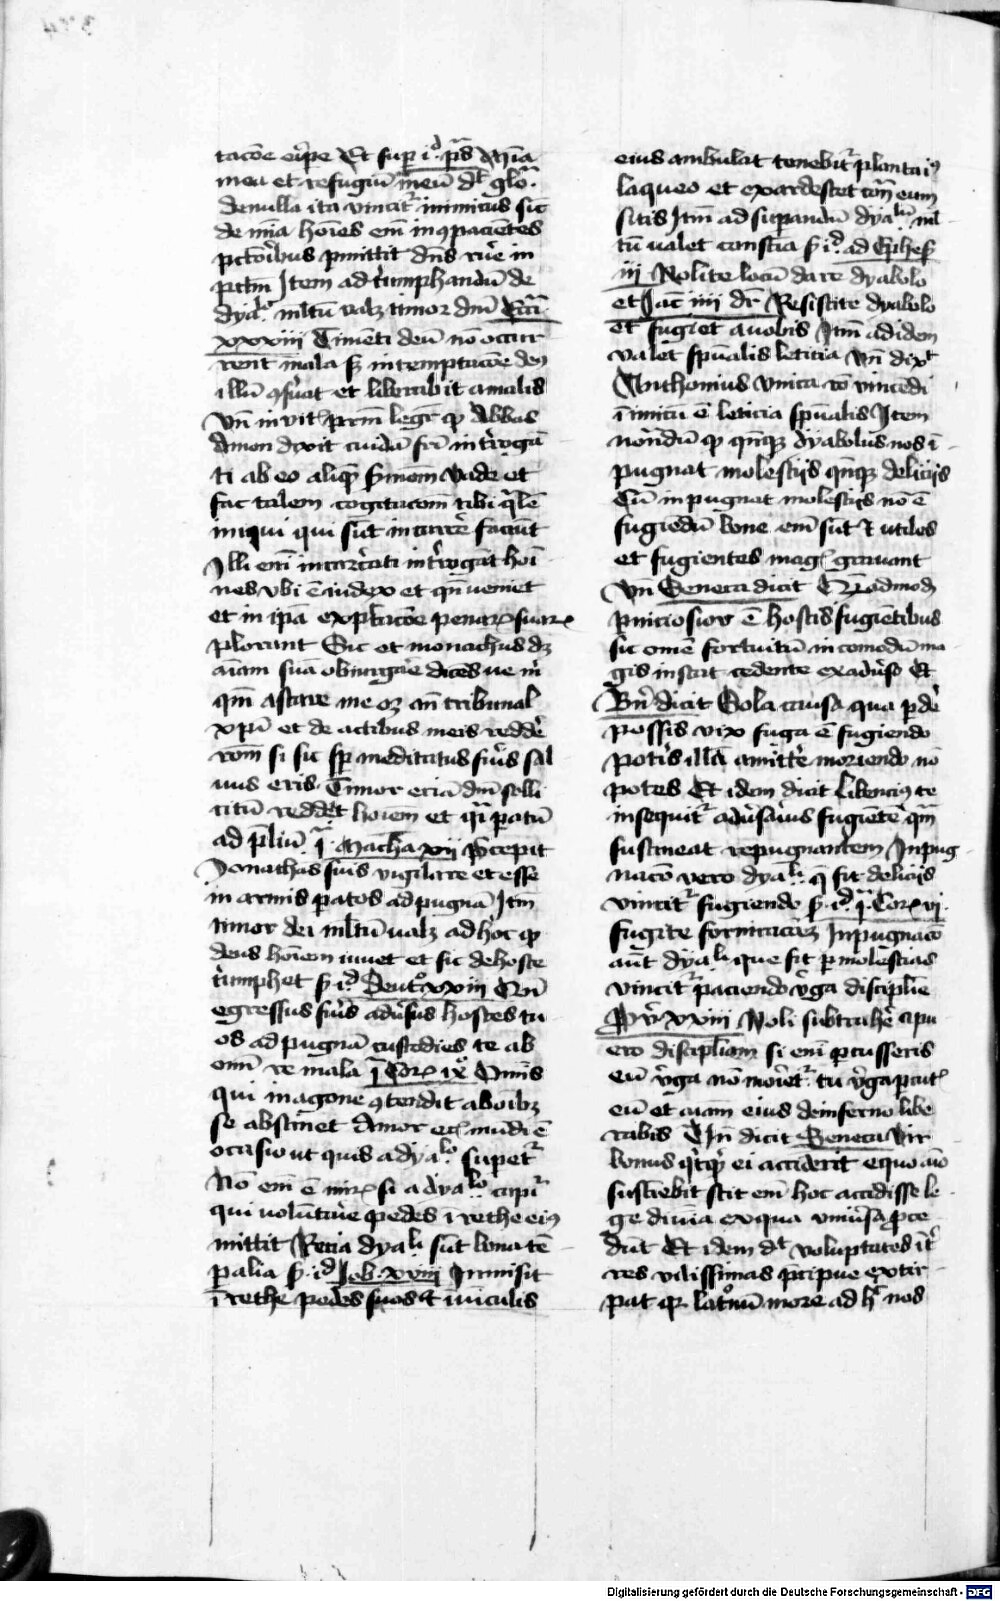 tacōe eripe Et sup i^d pͣs Mīa
mea et refugiū meū dt glo.
de nulla ita vincit^r inimicus sic
de mīa hoīes em̄ īpacietes
pctōribus pmittit dn̄s rue in
pctm̄ Item ad triumphandū de
dya.^o mltū valz timor dm̄ Ecci
xxxiii Timēti deū nō occur
rent mala sz in temptacōe de9
illū 9suat et liberabit a malis
Vn̄ in vit^s ptrm̄ legr qp Abbas
Amon dixit cuidā fri introga
ti ab eo aliqp smōem vade et
fac talem cogitacōem tibi qlē
iniqui qui sūt in carce faciūt
Illi em̄ incarcati introgāt hoī
nes vbi ē iudex et qn̄ veniet
et in ipa exptacōe penarꝝ suarꝝ
plorant Sic et monachus dz
aīam suā obiurgare dices ve m
qm̄ astare me oz an̄ tribunal
xpi et de actibus meis redde
rōm si sic sp meditatus fuis sal
uus eris Timor eciā dm̄ solli
citū reddet hoīem et qi patū
ad pliū i Macha xii Pcepit
Ionathas suis vigilare et esse
in armis patos ad pugnā Itm̄
timor dei mltū valz ad hoc qp
deus hoīem iuuet et sic de hoste
triumphet s. i^d Deut^o xxiii Cū
egressus fuis adusus hostes tu
os ad pugnā custodies te ab
om̄i re mala i Corꝝ ix Om̄is
qui in agone 9tendit ab oībz
se abstinet Amor ecꝭ mūdi ē
occasio ut quis a dya.^lo supet^r
Nō em̄ ē mirꝝ si a dya.^lo capit^r
qui volūtarie pedes ī rethe ei9
mittit Recia dya.^li sūt bona tē
palia s. i^d Iob xviii Inmisit
ī rethe pedes suos et ī maculis
eius ambulat tenebit^r planta i9
laqueo et exardescet ctra eum
sitis Itm̄ ad supandū dya^lū ml
tū valet constīa s. i^d ad Ephes
iiii Nolite locū dare dyabolo
et Iac iiii dr Resistite dyabolo
et fugiet a vobis Itm̄ ad idem
valet spūalis leticia Vn̄ dix^t
Anthonius Vnica rō vincēdi
īimicū ē leticia spūalis Item
notandū qp qn̄qz dyabolus nos ī
pugnat molestiis qn̄qz deliciis
Cū inpugnat molestiis nō ē
fugiēdū bone em̄ sūt et vtiles
et fugientes magꝭ grauant
Vn̄ Seneca dicit Quēadmodꝫ
pniciosior ē hostis fugiētibus
sic om̄e fortuitū incomodū ma
gis instat cedente et aduso Et
Bn̄ dicit Sola causa qua pde
possis vix fuga ē fugiendo
potis illā amitte moriendo nō
potes Et idem dicit Libenci9 te
insequit^r adusarius fugiētē qm̄
sustineat repugnantem Inpug
nacō vero dya.^li q fit deliciis
vincit^r fugiendo s. i^d i Corꝝ vi
fugite fornicacōꝫ Inpugnacō
aūt dya.^li que fit p molestias
vincit^r paciendo vga discipline
Pv xxiii Noli subtrahe a pu
ero disciplinam si em̄ pcusseris
eū vga nō moriet^r tu vga pcutꝭ
eū et aīam eius de inferno libe
rabis Vn̄ dicit Seneca Vir
bonus qcqd ei acciderit equo aīo
sustiebit scit em̄ hoc accidisse le
ge diuīa ex qua vniusa pce
dūt Et idem dt voluptates it
res vilissimas pcipue extir
pat qz latronū more ad h^c nos